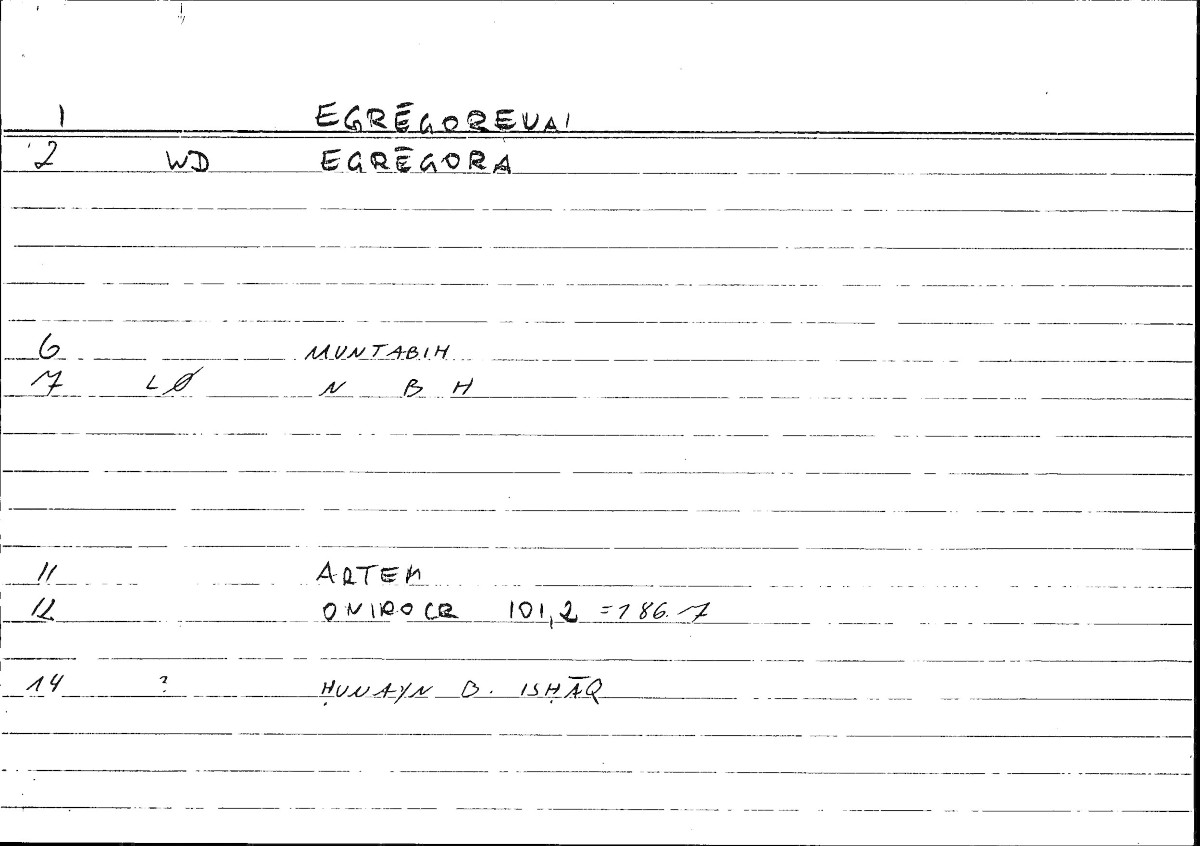 1 EGRĒGOREVAI
2 WD EGRĒGORA
6 MUNTABIH
7 LØ N B H
11 ARTEM
12 ONIROCR 101,2 =186.7
14 ? ḤUNAYN B. ISḤĀQ